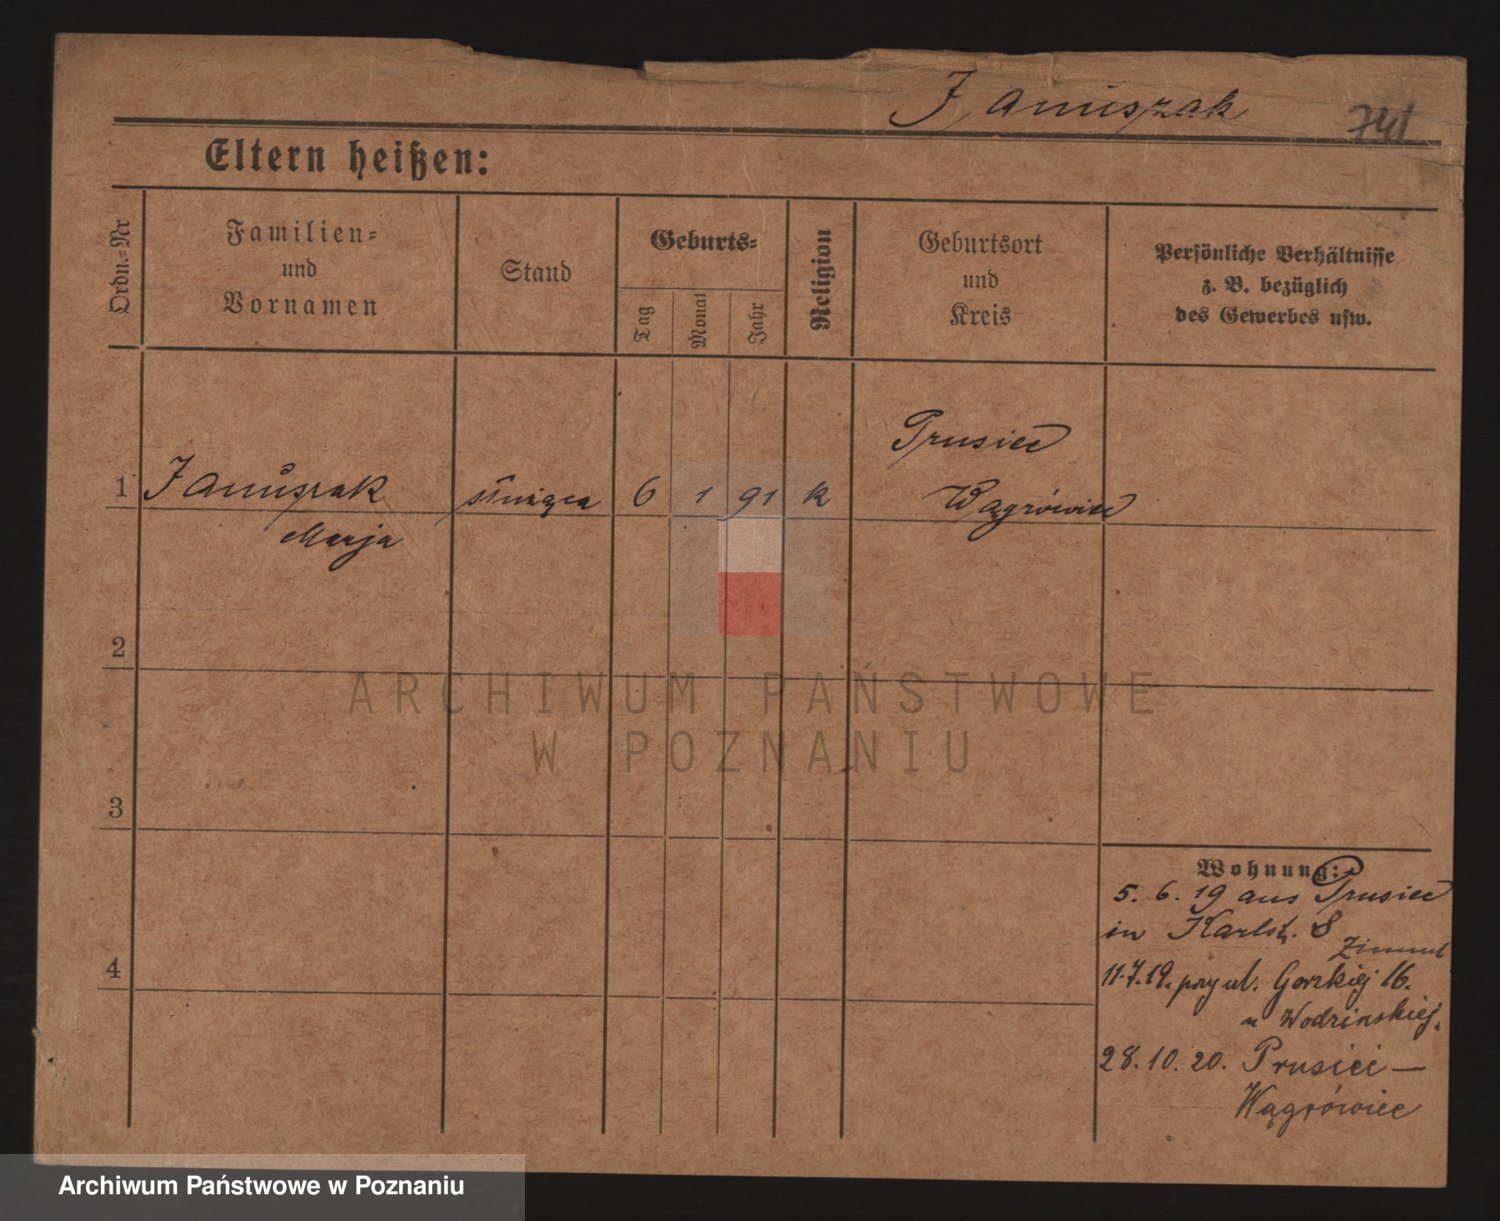 Januszak 741
Eltern heißen:
Ordn.-Nr
Familien-
und
Vornamen
Stand
Geburts-
Tag
Monat
Jahr
Religion
Geburtsort
und
Kreis
Persönliche Verhältnisse
z. B. bezüglich
des Gewerbes usw.
Prusiec
1 Januszak służąca 6 1 91 k Wągrówiec
Marja
2
ARCHIWUM PAŃSTWOWE
W POZNANIU
3
Wohnung:
5. 6. 19 aus Prusiec
in Karlstr. 8
4
11.7.19. przy ul. Gorzkiej 16.
u Wodzinskiej.
28. 10. 20. Prusiec —
Wągrówiec
Archiwum Państwowe w Poznaniu